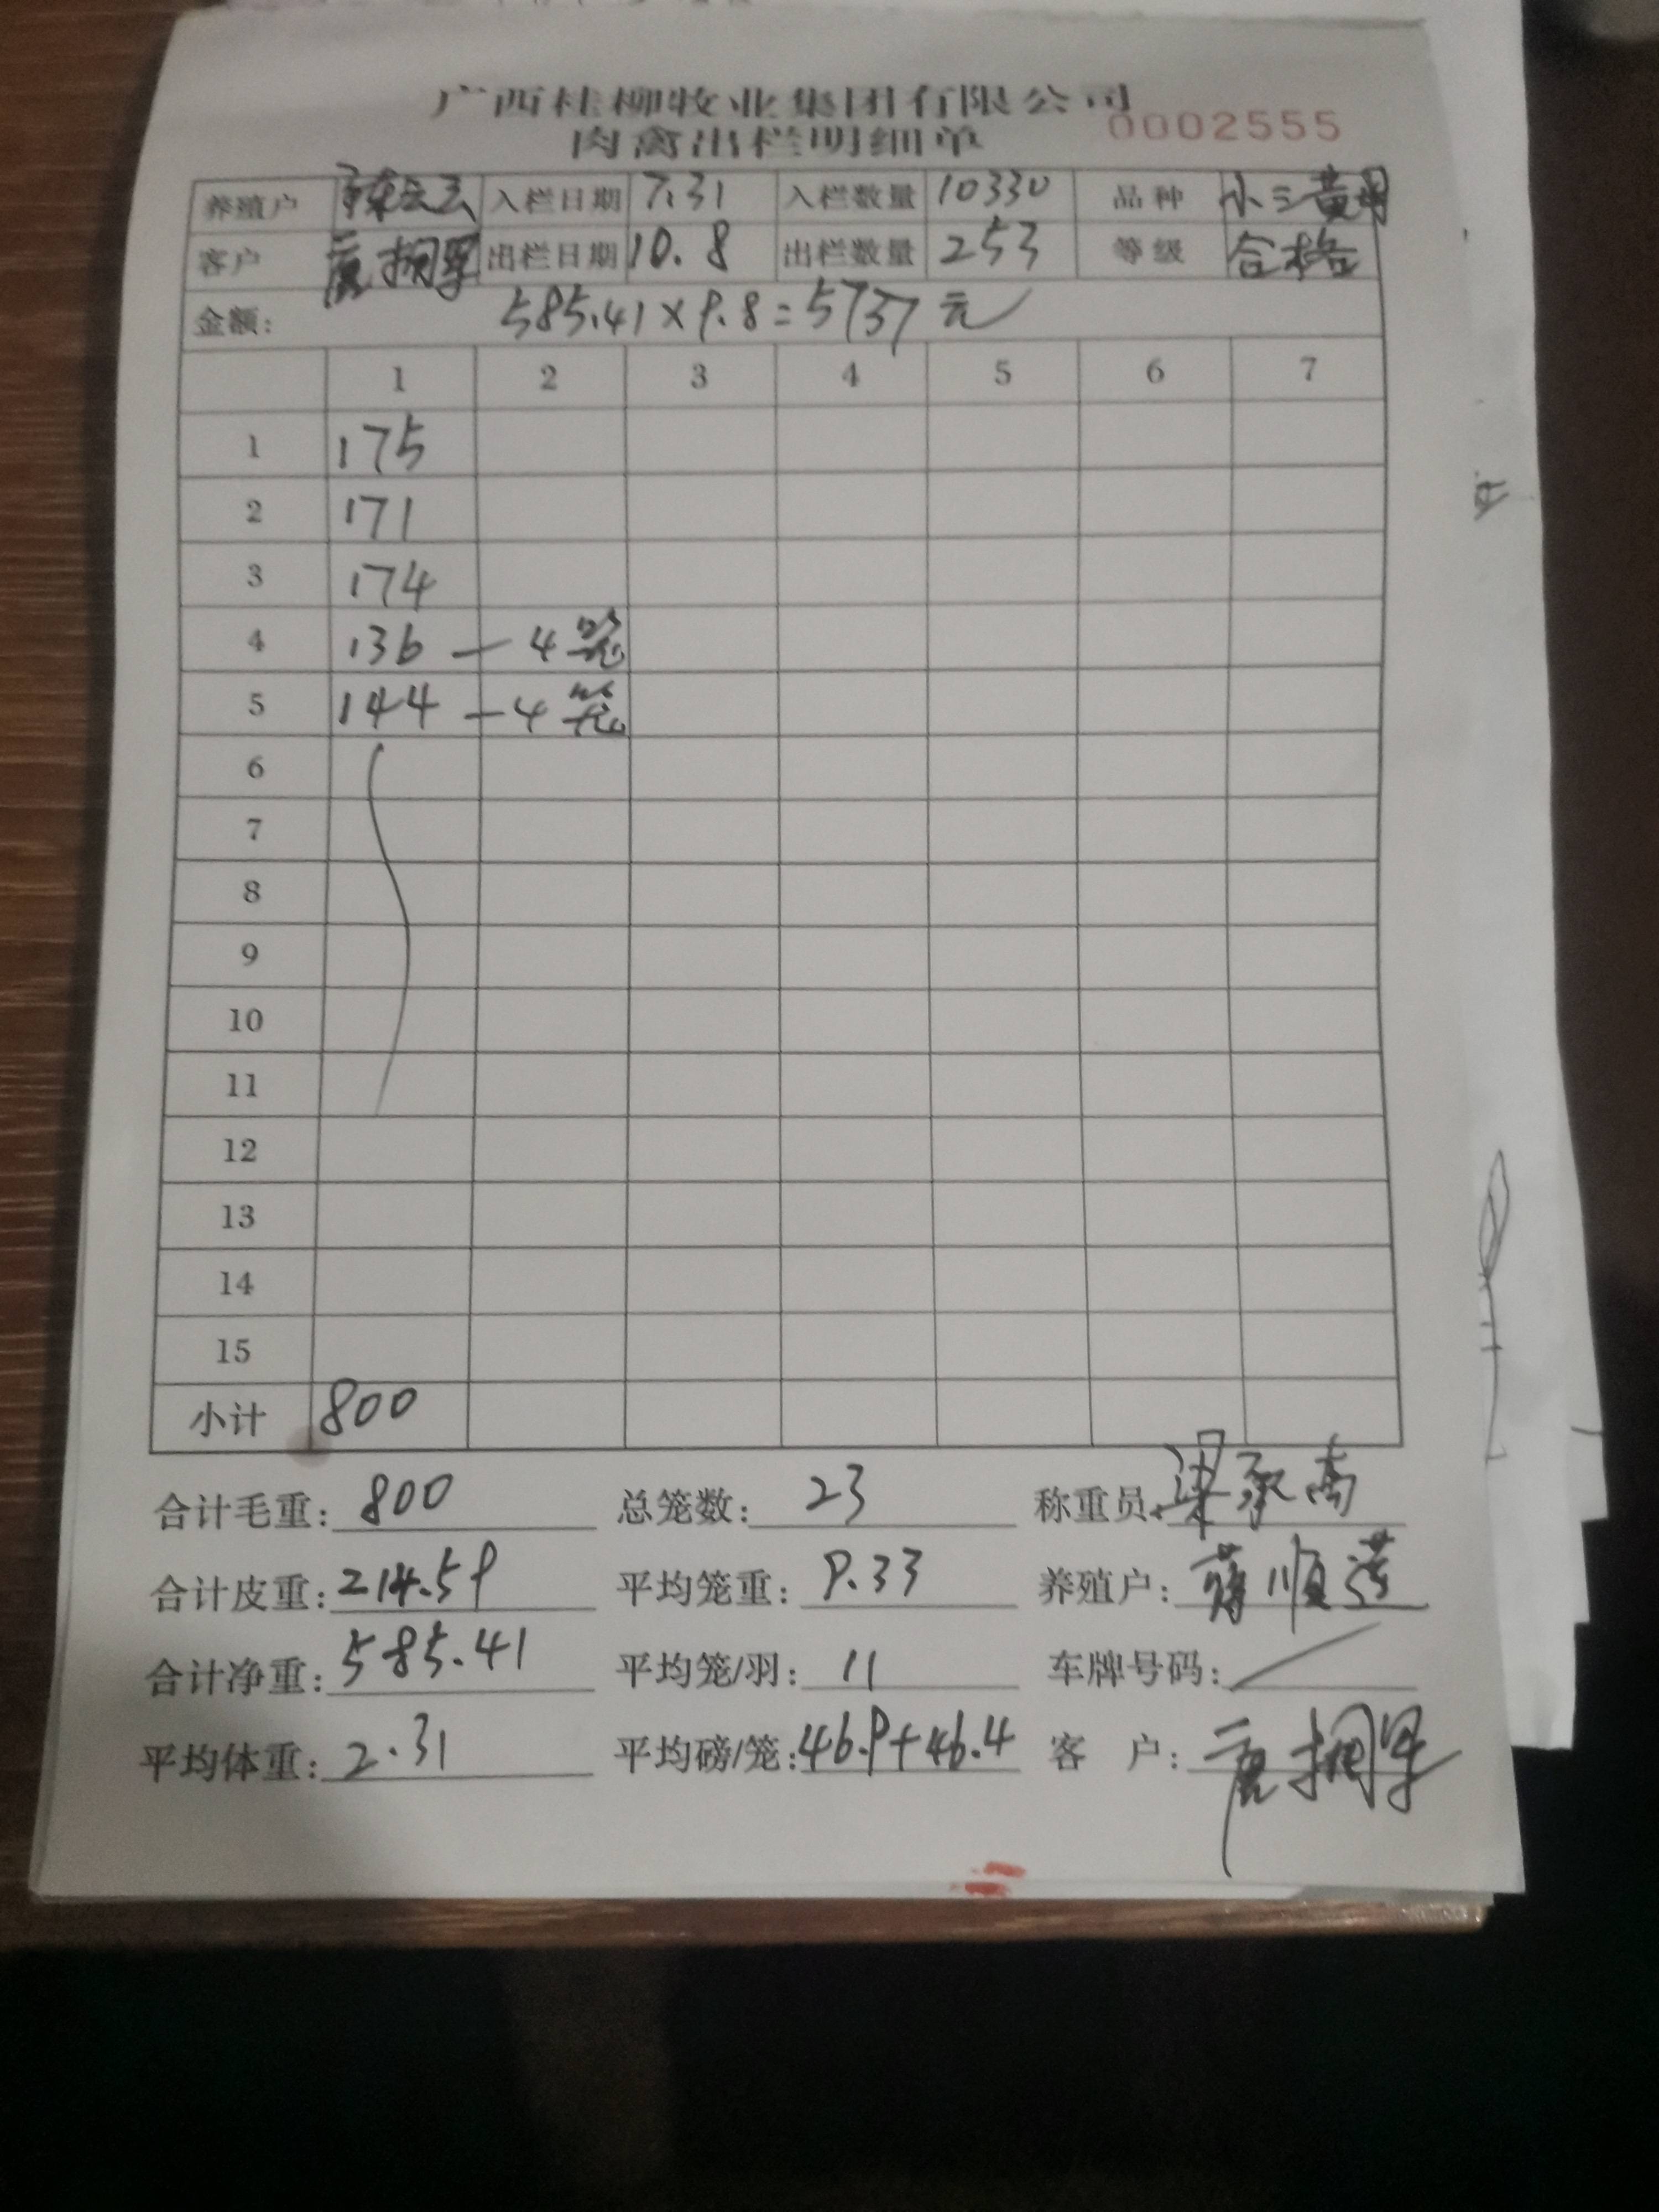 广西桂柳牧业集团有限公司
肉禽出栏明细单 0002555
养殖户 陈云云 入栏日期 7.31 入栏数量 10330 品种 小三黄
客户 唐 出栏日期 10.8 出栏数量 253 等级 合格
金额: 585.41×9.8=5737元
1 2 3 4 5 6 7
1 175
2 171
3 174
4 136 — 4笼
5 144 — 4笼
6
7
8
9
10
11
12
13
14
15
小计 800
合计毛重: 800 总笼数: 23 称重员: 梁承高
合计皮重: 214.59 平均笼重: 9.33 养殖户: 顺莲
合计净重: 585.41 平均笼/羽: 11 车牌号码:
平均体重: 2.31 平均磅/笼: 46.9+46.4 客 户: 唐